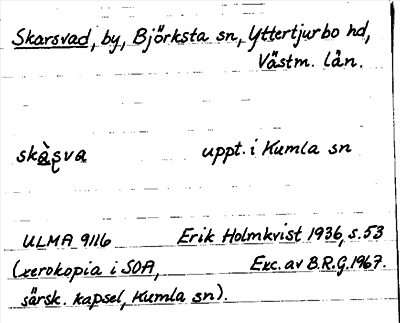 Skarsvad, by, Björksta sn, Yttertjurbo hd,
Västm. län.
skàʂva uppt. i Kumla sn
ULMA 9116 Erik Holmkvist 1936, s. 53
(xerokopia i SOA, Exc. av B.R.G. 1967.
särsk. kapsel, Kumla sn).